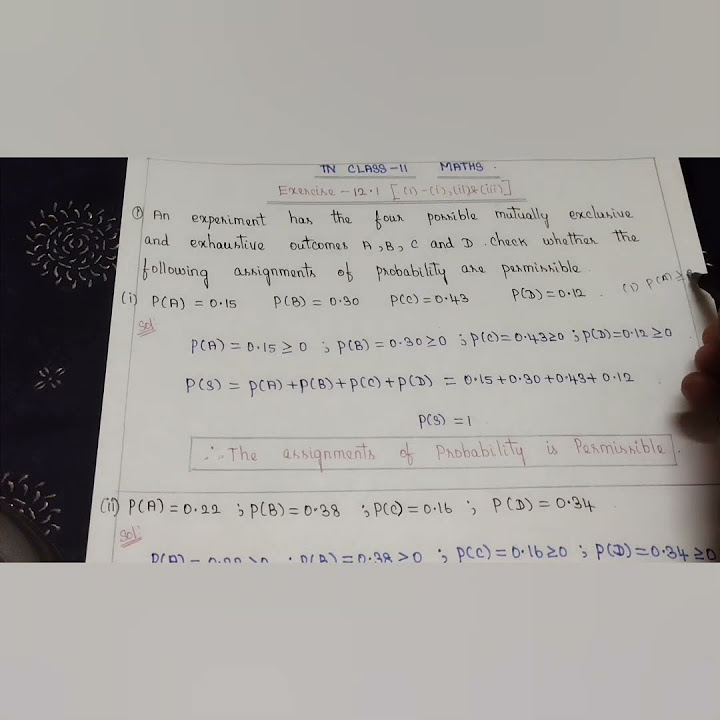 TN CLASS-11 MATHS.
Exercise - 12.1 [(1) - (i),(ii)&(iii)]
① An experiment has the four possible mutually exclusive
and exhaustive outcomes A, B, C and D. check whether the
following assignments of probability are permissible.
(i) P(A) = 0.15 P(B) = 0.30 P(C) = 0.43 P(D) = 0.12 . (1) P(A) ≥
Sol:
P(A) = 0.15 ≥ 0 ; P(B) = 0.30 ≥ 0 ; P(C) = 0.43 ≥ 0 ; P(D) = 0.12 ≥ 0
P(S) = P(A) + P(B) + P(C) + P(D) = 0.15 + 0.30 + 0.43 + 0.12
P(S) = 1
∴ The assignments of Probability is Permissible.
(ii) P(A) = 0.22 ; P(B) = 0.38 ; P(C) = 0.16 ; P(D) = 0.34
Sol:
P(B) = 0.38 > 0 ; P(C) = 0.16 ≥ 0 ; P(D) = 0.34 ≥ 0